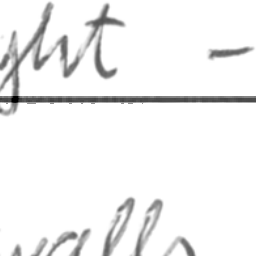 ght -
walls